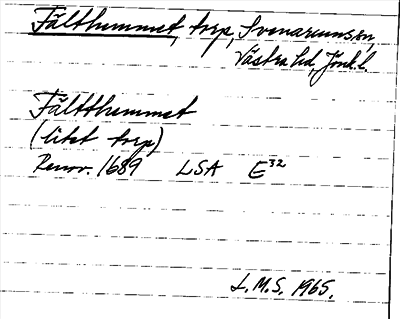 Fälthemmet, torp, Svenarums sn,
Västra hd, Jönk.l.
Fältthemmet
(litet torp)
Renov. 1689 LSA E³²
L.M.S. 1965.